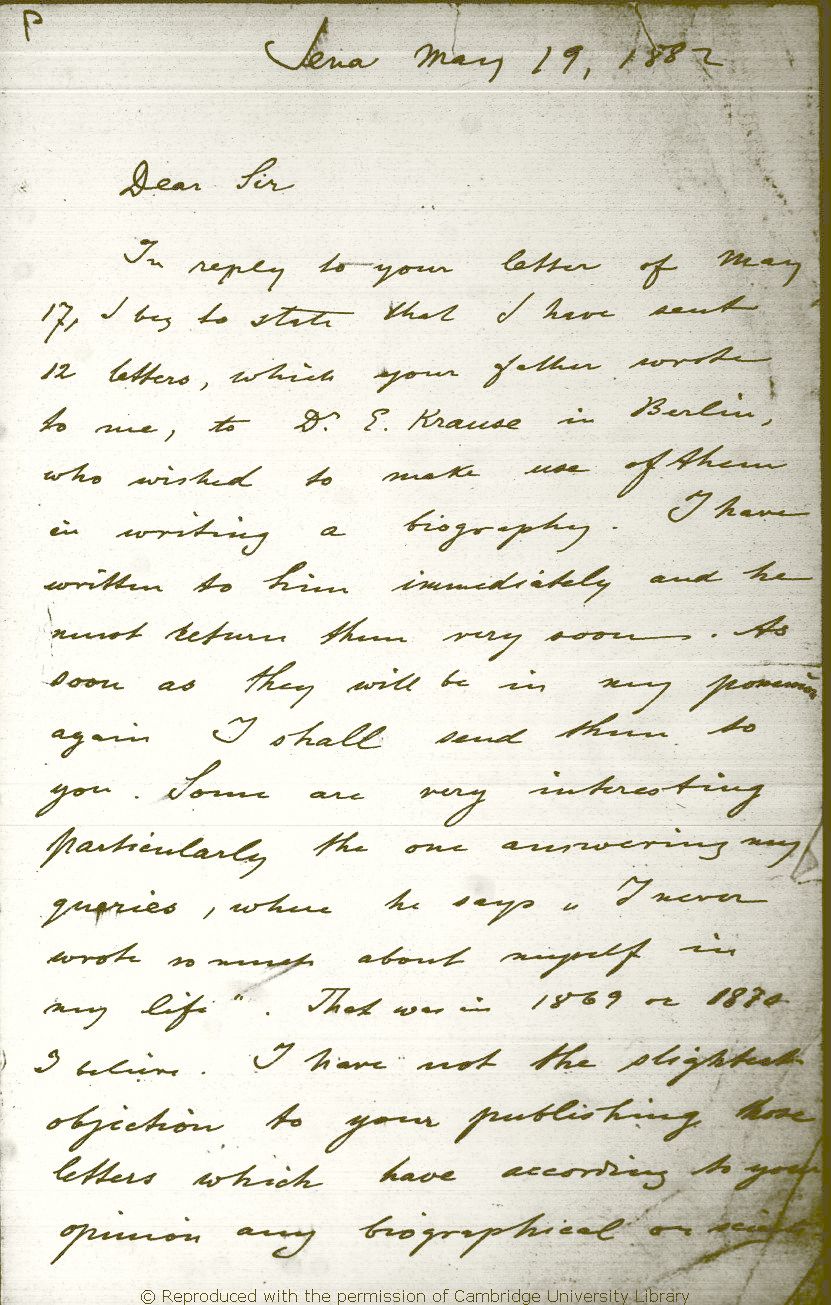 P
Jena May 19, 1882
Dear Sir
In reply to your letter of May
17, I beg to state that I have sent
12 letters, which your father wrote
to me, to Dr. E. Krause in Berlin,
who wished to make use of them
in writing a biography. I have
written to him immediately and he
must return them very soon. As
soon as they will be in my possession
again I shall send them to
you. Some are very interesting
particularly the one answering my
queries, where he says „ I never
wrote so much about myself in
my life". That was in 1869 or 1870
I believe. I have not the slightest
objection to your publishing those
letters which have according to your
opinion any biographical or
© Reproduced with the permission of Cambridge University Library